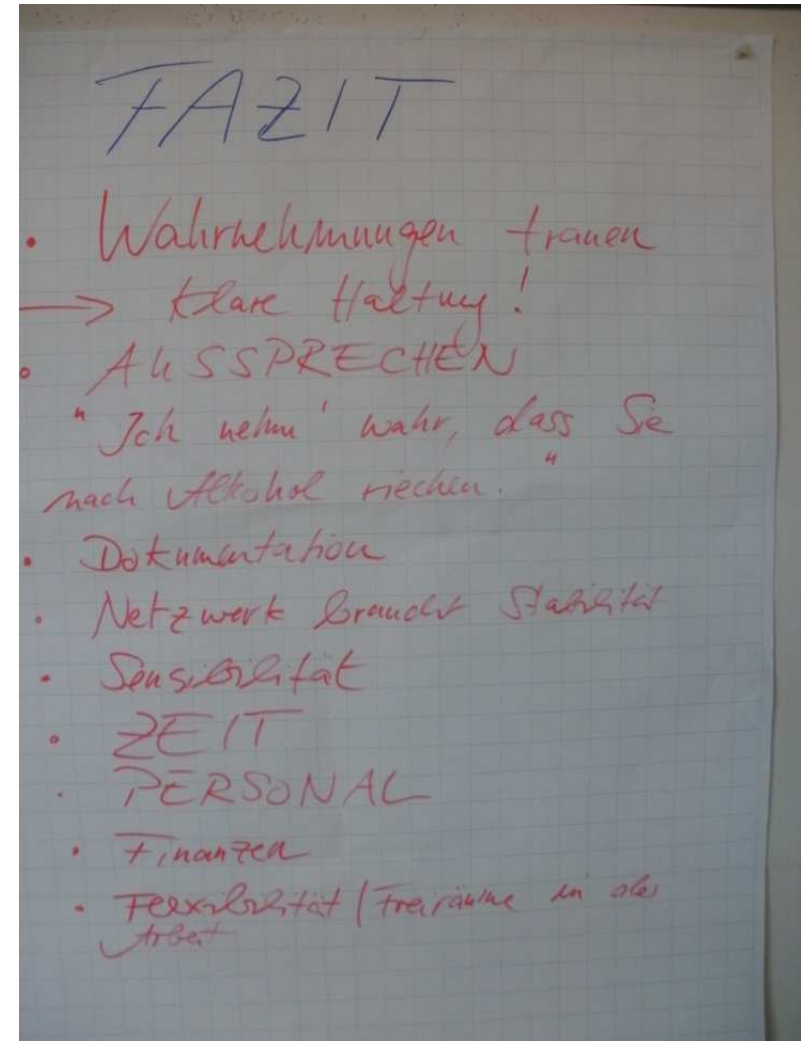 FAZIT
• Wahrnehmungen trauen
→ klare Haltung!
• AUSSPRECHEN
"Ich nehm' wahr, dass Sie
nach Alkohol riechen."
• Dokumentation
• Netzwerk braucht Stabilität
• Sensibilität
• ZEIT
• PERSONAL
• Finanzen
• Flexibilität / Freiräume in der
Arbeit